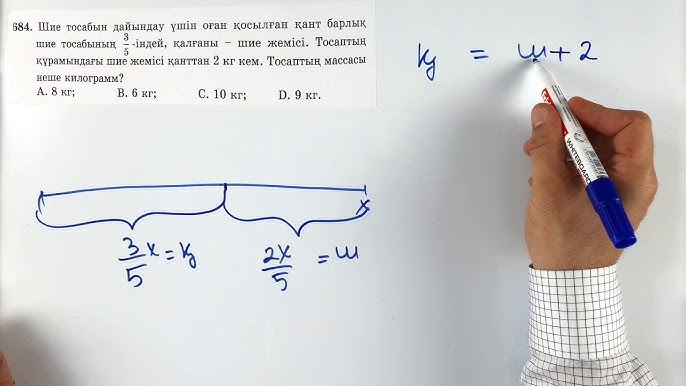 684. Шие тосабын дайындау үшін оған қосылған қант барлық
шие тосабының 3/5 -індей, қалғаны – шие жемісі. Тосаптың
құрамындағы шие жемісі қанттан 2 кг кем. Тосаптың массасы
неше килограмм?
A. 8 кг; B. 6 кг; C. 10 кг; D. 9 кг.
Қ = ш + 2
x
3/5 x = Қ
2x/5 = ш
WHITEBOARD